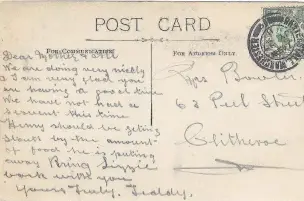 POST CARD
FOR COMMUNICATION
FOR ADDRESS ONLY.
Dear Mother & All
We are doing very nicely
& I am very glad you
are having a good time
We have not had a
this time
Henry should be getting
stout by the amount
of food he is putting
away Bring Lizzie
back with you
Yours Truly. Teddy.
Mrs Bowler
63 Peel Street
Clitheroe